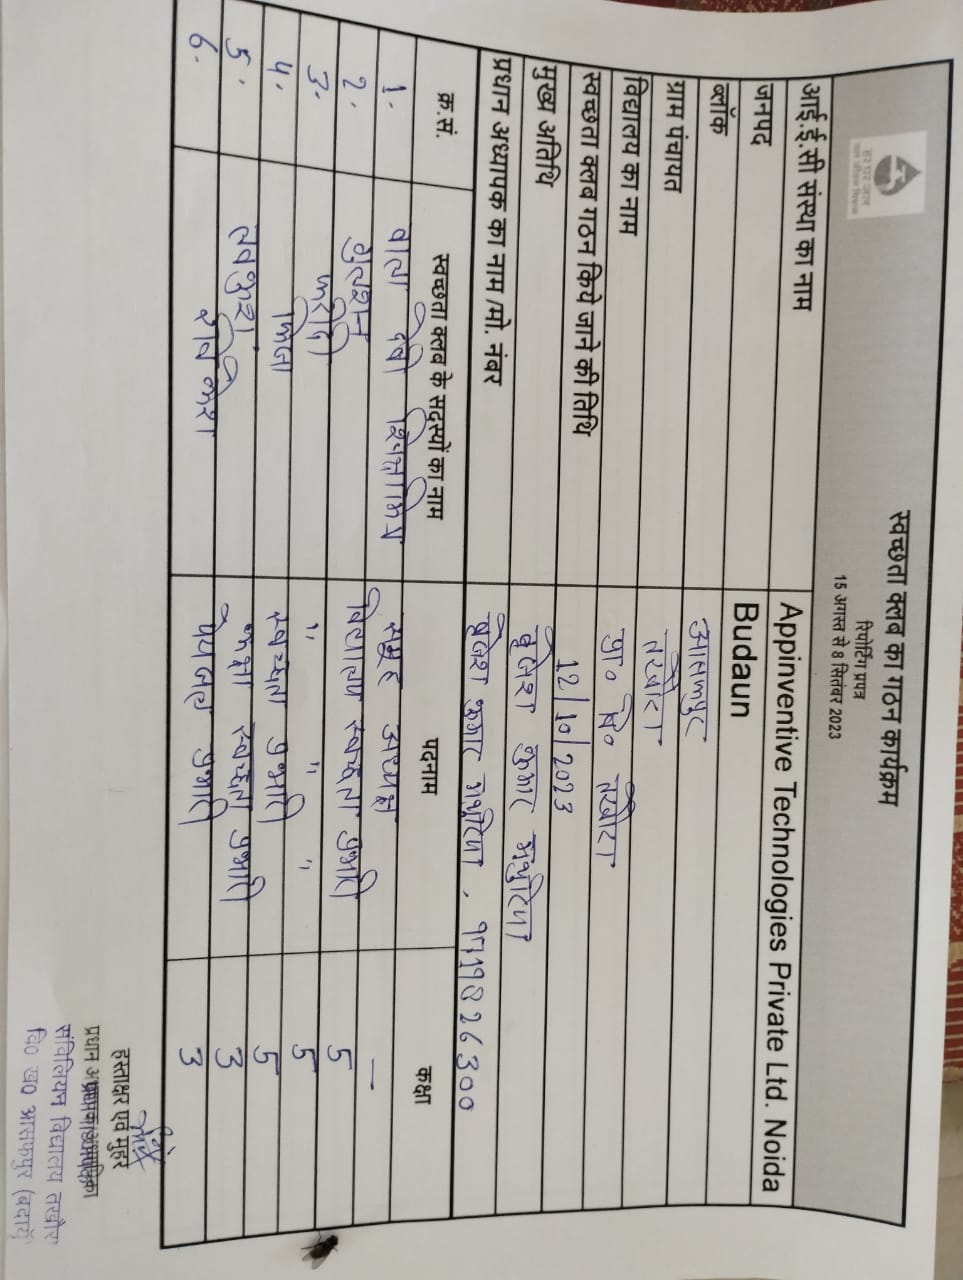 हर घर जल
जल जीवन मिशन
स्वच्छता क्लब का गठन कार्यक्रम
रिपोर्टिंग प्रपत्र
15 अगस्त से 8 सितंबर 2023
आई.ई.सी संस्था का नाम Appinventive Technologies Private Ltd. Noida
जनपद Budaun
ब्लॉक आसफपुर
ग्राम पंचायत तखौरा
विद्यालय का नाम प्रा० वि० तखौरा
स्वच्छता क्लब गठन किये जाने की तिथि 12/10/2023
मुख्य अतिथि बृजेश कुमार
प्रधान अध्यापक का नाम /मो. नंबर बृजेश कुमार
क्र.सं. स्वच्छता क्लब के सदस्यों का नाम पदनाम कक्षा
1. देवी समूह अध्यक्ष —
2. गुलशन विद्यालय स्वच्छता प्रभारी 5
3. " " " 5
4. स्वच्छता प्रभारी 5
5. लवकुश कक्षा स्वच्छता प्रभारी 3
6. पेयजल प्रभारी 3
हस्ताक्षर एवं मुहर
प्रधान
संविलियन विद्यालय तखौरा
वि० ख० आसफपुर (बदायूँ)